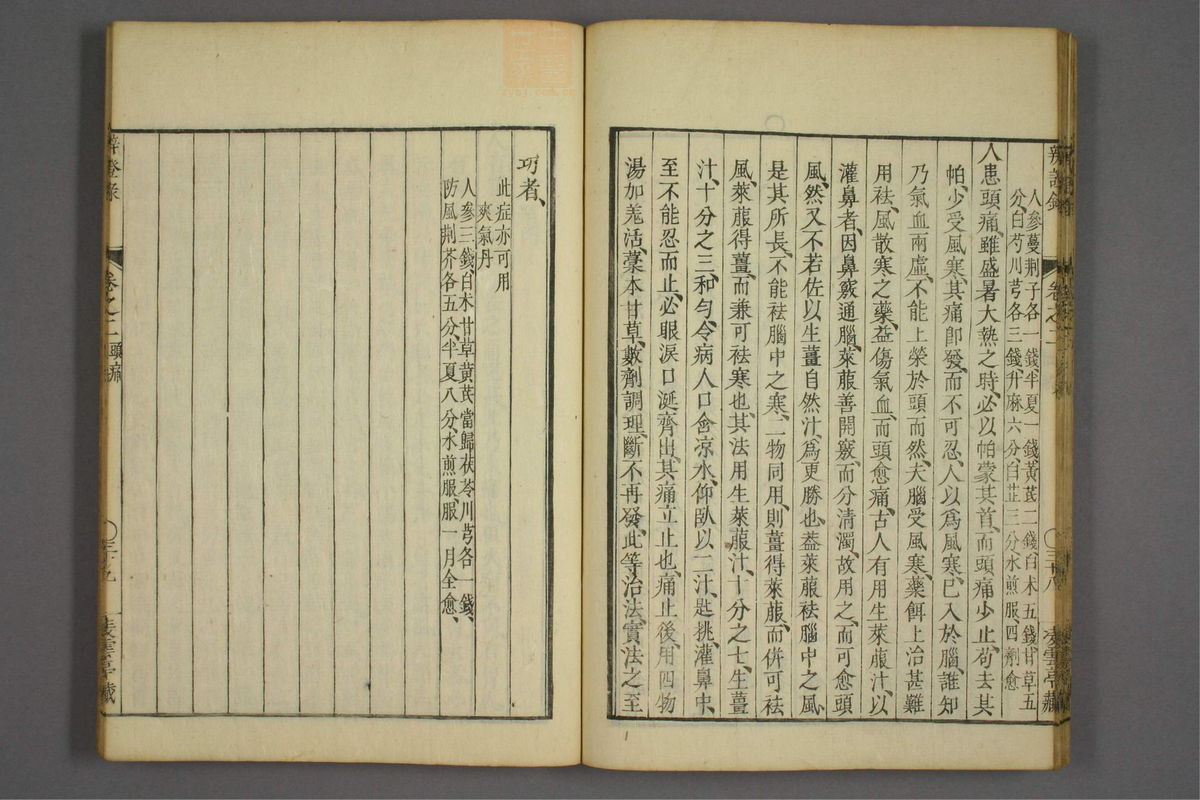 辨證錄 卷之二 三十八 凌雲亭藏
人參蔓荆子各一錢、半夏一錢黃芪二錢白术五錢、甘草五
分、白芍川芎各三錢、升麻六分、白芷三分水煎服、四劑愈
人患頭痛、雖盛暑大熱之時、必以帕蒙其首、而頭痛少止、苟去其
帕、少受風寒、其痛卽發、而不可忍、人以爲風寒、已入於腦、誰知
乃氣血兩虛、不能上榮於頭而然、夫腦受風寒、藥餌上治甚難
用祛、風散寒之藥、益傷氣血、而頭愈痛、古人有用生萊菔汁、以
灌鼻者、因鼻竅通腦、萊菔善開竅、而分清濁、故用之、而可愈頭
風、然又不若佐以生薑自然汁、爲更勝也、葢萊菔祛腦中之風、
是其所長、不能祛腦中之寒、二物同用、則薑得萊菔、而併可祛
風、萊菔得薑、而兼可祛寒也、其法用生萊菔汁、十分之七、生薑
汁、十分之三、和匀、令病人口含凉水、仰臥以二汁、匙挑、灌鼻中、
至不能忍而止、必眼淚口涎齊出、其痛立止也、痛止後、用四物
湯加羌活、藁本甘草、數劑調理、斷不再發、此等治法、實法之至
巧者、
此症亦可用
爽氣丹
人參三錢、白术甘草黃芪當歸茯苓川芎各一錢、
防風荆芥各五分、半夏八分、水煎服、服一月全愈、
辨證錄 卷之二 頭痛 三十九 凌雲亭藏